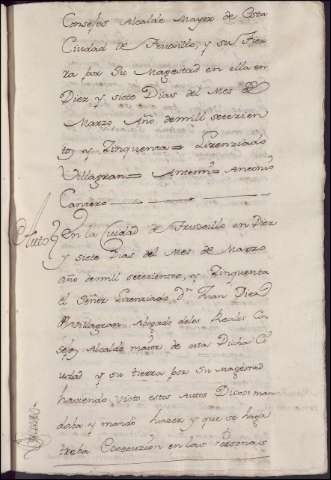 Consejos Alcalde Mayor de esta
Ciudad de Truxillo, y su tier
ra por Su Magestad en ella en
Diez y siete Dias del Mes de
Marzo Año de mill setezien
tos y Zinquenta = Lizenziado
Villagran = Antemi = Antonio
Cantero
Auto
En la Ciudad de Truxillo en Diez
y siete Dias del Mes de Marzo
año de mill setezientos, y Zinquenta
el Señor Lizenziado Dn Juan
Villagran Abogado de los Reales Con
sejos Alcalde maior de esta Dicha Ci
udad y su tierra por Su Magestad
haviendo visto estos Autos Dixo: man
daba y mando hazer y que se haga
trava Execuzion en las Personas